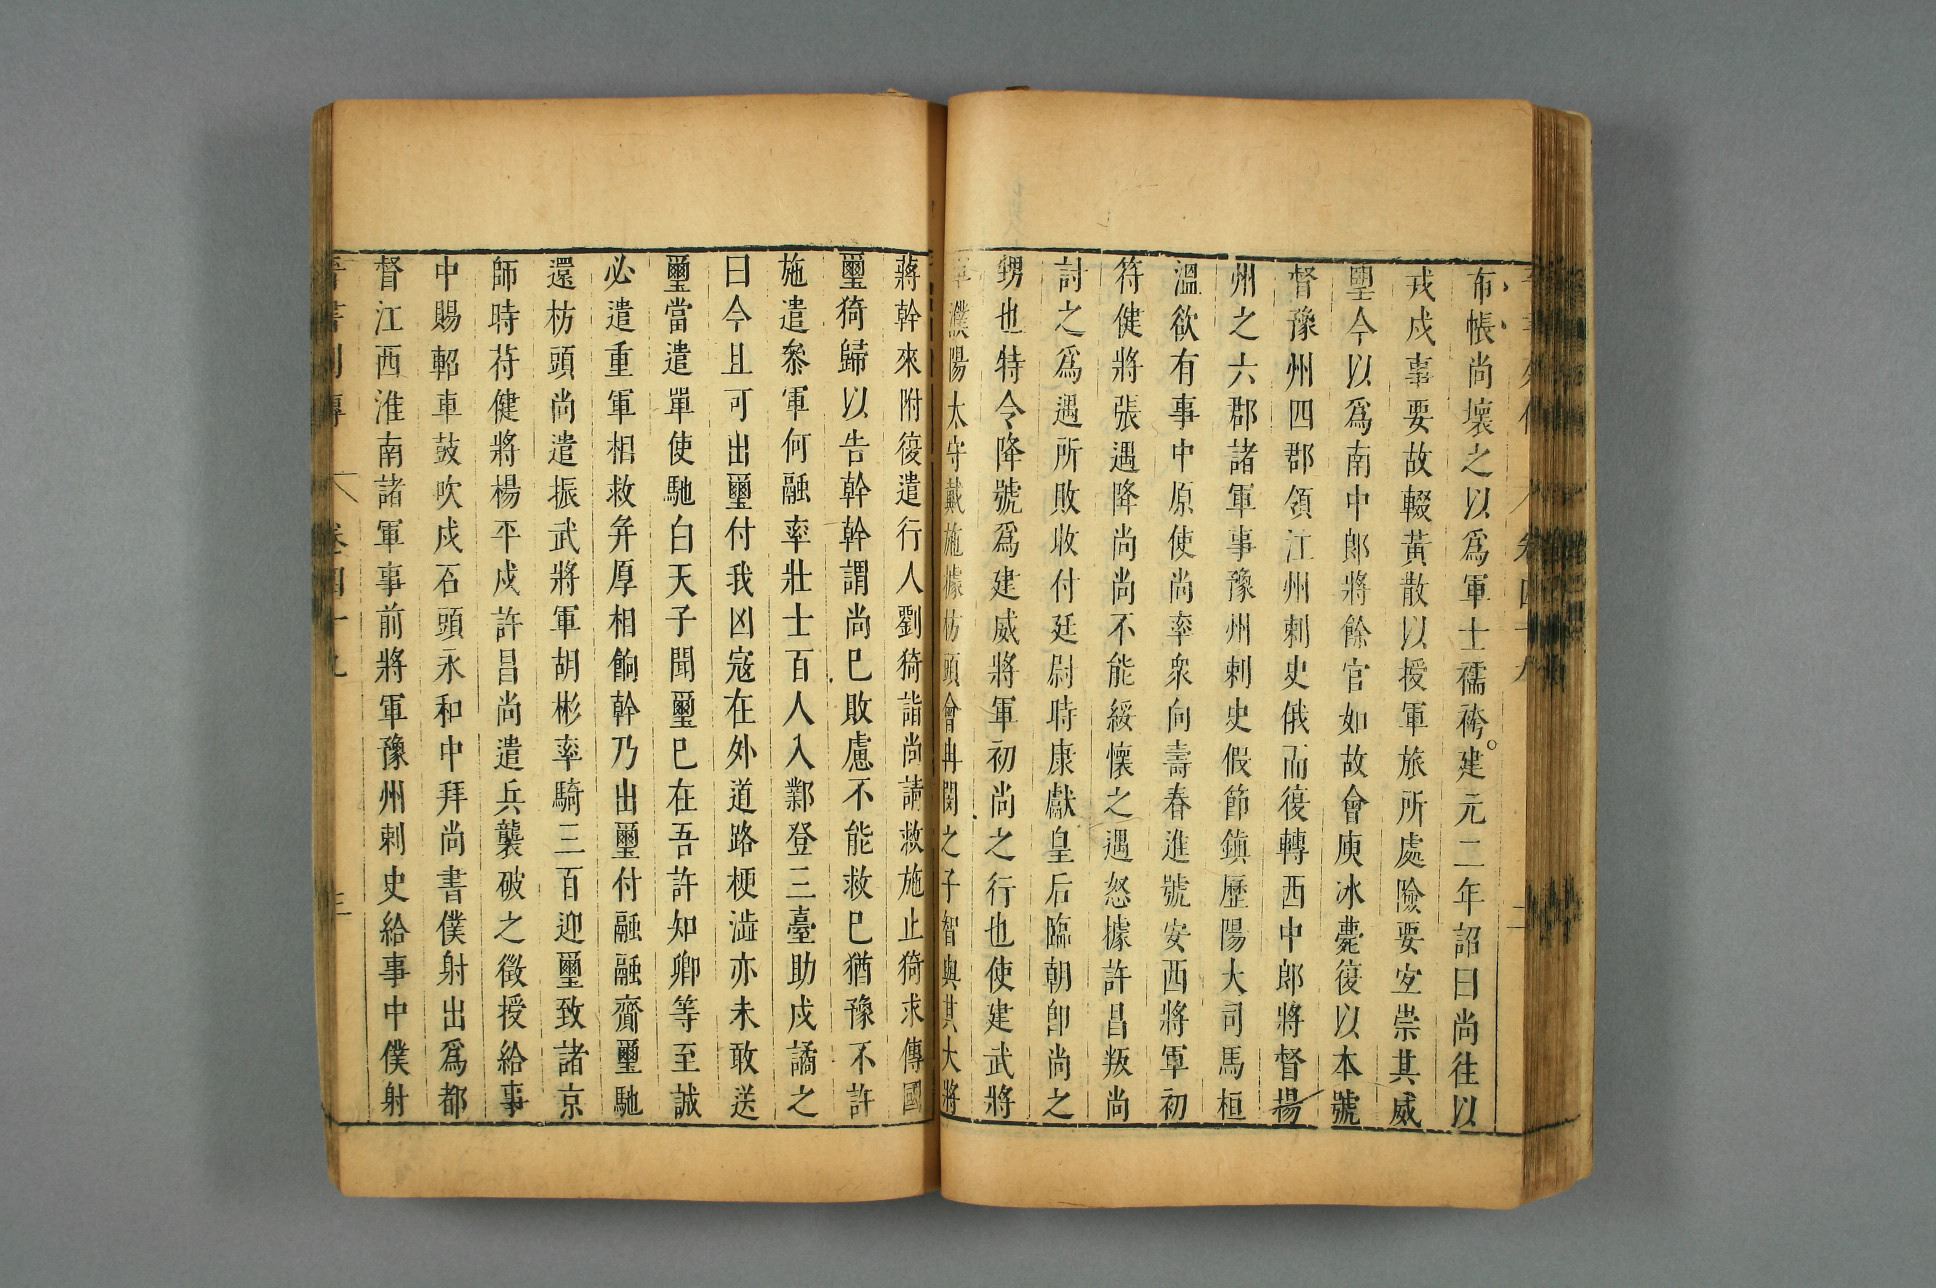 布帳尚壞之以爲軍士襦袴建元二年詔曰尚往以
戎戍事要故輟黃散以授軍旅所處險要宜崇其威
望今以爲南中郎將餘官如故會庾冰薨復以本號
督豫州四郡領江州刺史俄而復轉西中郎將督揚
州之六郡諸軍事豫州刺史假節鎮歷陽大司馬桓
溫欲有事中原使尚率衆向壽春進號安西將軍初
苻健將張遇降尚尚不能綏懷之遇怒據許昌叛尚
討之爲遇所敗收付廷尉時康獻皇后臨朝卽尚之
甥也特令降號爲建威將軍初尚之行也使建武將
軍濮陽太守戴施據枋頭會冉閔之子智與其大將
蔣幹來附復遣行人劉猗詣尚請救施止猗求傳國
璽猗歸以告幹幹謂尚巳敗慮不能救巳猶豫不許
施遣參軍何融率壯士百人入鄴登三臺助戍譎之
曰今且可出璽付我凶寇在外道路梗澁亦未敢送
璽當遣單使馳白天子聞璽巳在吾許知卿等至誠
必遣重軍相救并厚相餉幹乃出璽付融融齎璽馳
還枋頭尚遣振武將軍胡彬率騎三百迎璽致諸京
師時苻健將楊平戍許昌尚遣兵襲破之徵授給事
中賜軺車鼓吹戍石頭永和中拜尚書僕射出爲都
督江西淮南諸軍事前將軍豫州刺史給事中僕射
晉書列傳 卷四十九 三